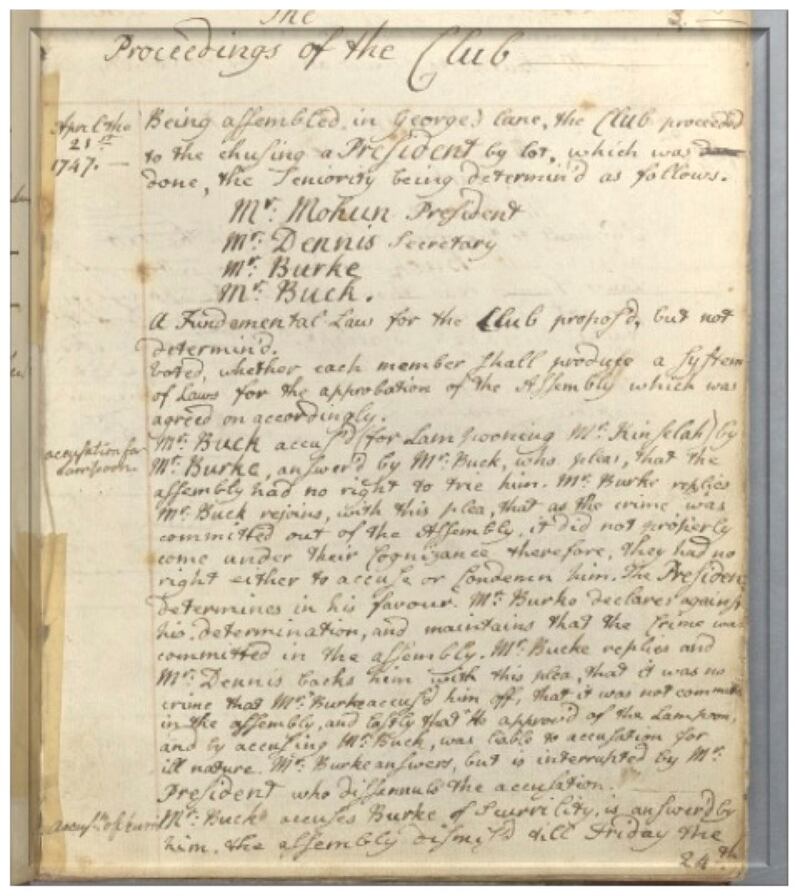 The
Proceedings of the Club
April the
21st
1747.
Being assembled in Georges lane, the Club proceeded
to the chusing a President by lot, which was
done, the Seniority being determin'd as follows.
Mr. Mohun President
Mr. Dennis Secretary
Mr. Burke
Mr. Buck.
A Fundemental Law for the Club propos'd, but not
determin'd.
Voted, whether each member shall produce a system
of Laws for the approbation of the Assembly which was
agreed on accordingly.
accusation for
Lampoon.
Mr. Buck accus'd (for Lampooning Mr. Kinselah) by
Mr. Burke, answer'd by Mr. Buck, who pleas, that the
assembly had no right to trie him. Mr. Burke replies
Mr. Buck rejoins, with this plea, that as the crime was
committed out of the Assembly, it did not properly
come under their Cognizance therefore, they had no
right either to accuse or Condemn him. The President
determines in his favour. Mr. Burke declares against
his determination, and maintains that the Crime was
committed in the assembly. Mr. Bucke replies and
Mr. Dennis backs him with this plea, that it was no
crime that Mr. Burke accus'd him off, that it was not committed
in the assembly, and lastly that he approv'd of the Lampoon,
and by accusing Mr. Buck, was liable to accusation for
ill nature. Mr. Burke answers, but is interrupted by Mr.
President who dissannuls the accusation.
Mr. Buck accuses Burke of Scurrility, is answer'd by
him. the assembly dismiss'd till Friday the
24th